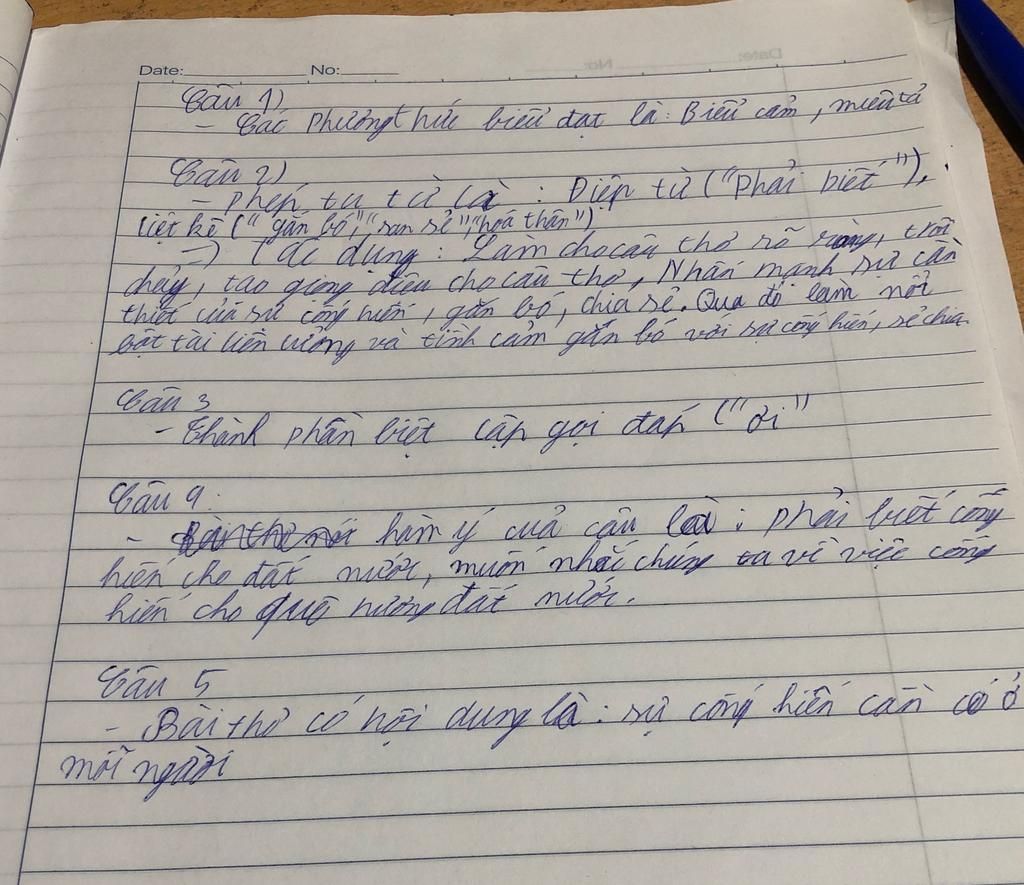 Date: No:
Câu 1)
- Các phương thức biểu đạt là: Biểu cảm, miêu tả
Câu 2)
- Phép tu từ là: Điệp từ ("Phải biết"),
liệt kê ("gắn bó", "san sẻ", "hoá thân")
=> Tác dụng: Làm cho câu thơ rõ ràng, trôi
chảy, tạo giọng điệu cho câu thơ, Nhấn mạnh sự cần
thiết của sự cống hiến, gắn bó, chia sẻ. Qua đó làm nổi
bật tài liên tưởng và tình cảm gắn bó với sự cống hiến, sẻ chia.
Câu 3
- Thành phần biệt lập gọi đáp ("ơi"
Câu 4.
- hàm ý của câu là: phải biết cống
hiến cho đất nước, muốn nhắc chúng ta về việc cống
hiến cho quê hương đất nước.
Câu 5
- Bài thơ có nội dung là: sự cống hiến cần có ở
mỗi người